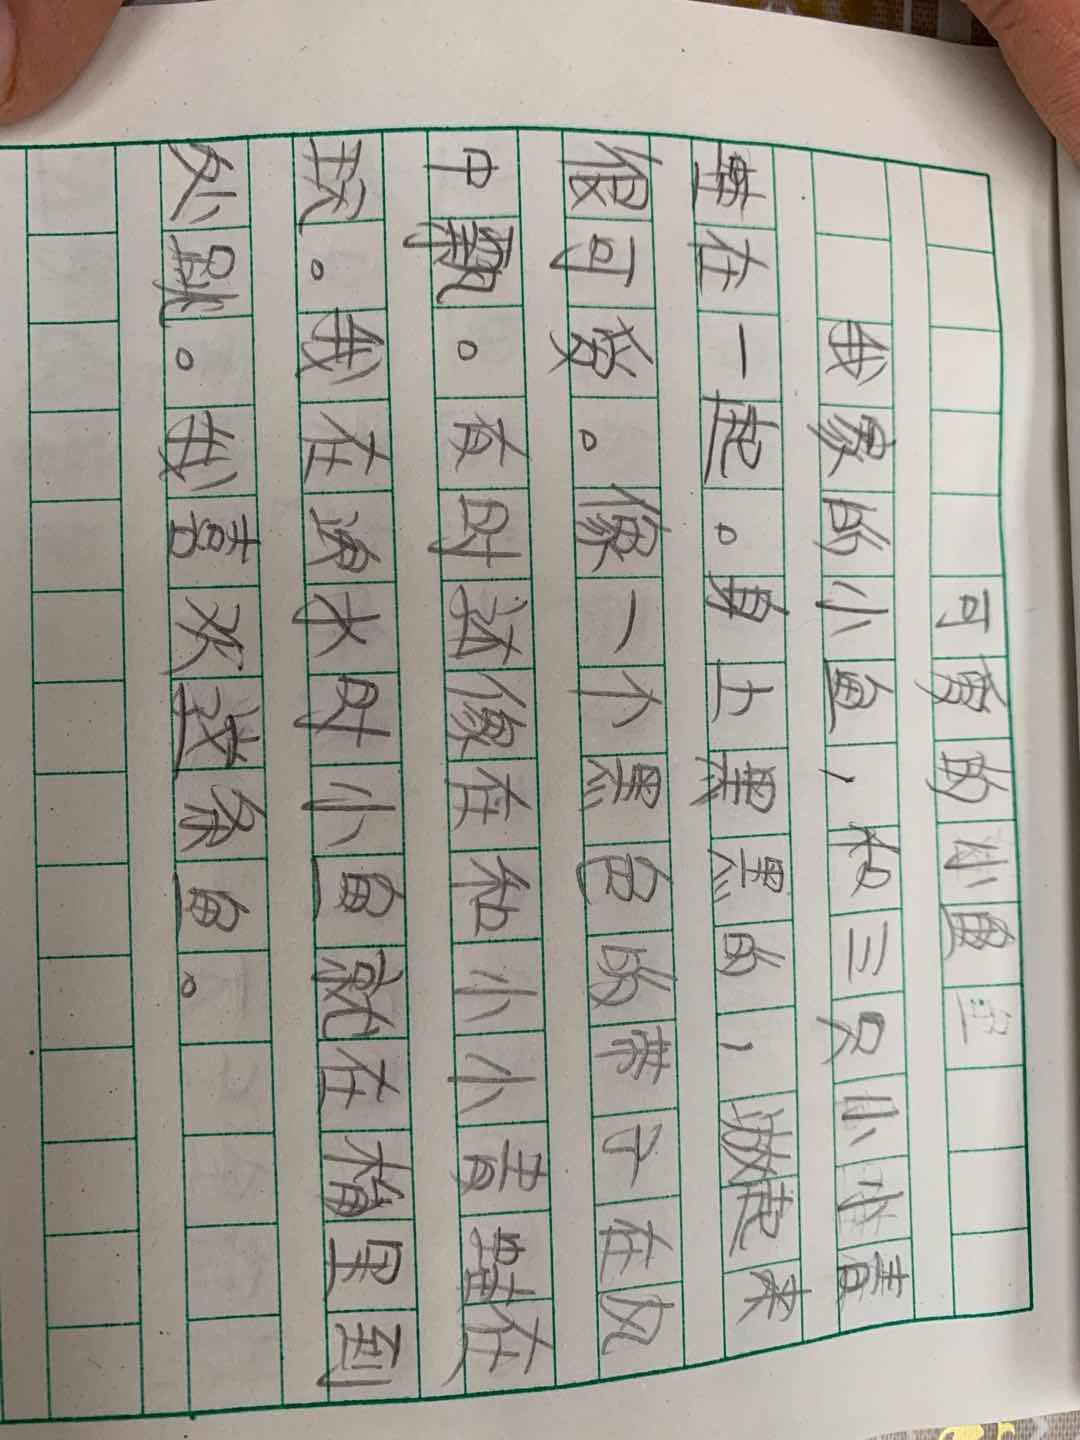 可爱的小鱼
我家的小鱼，和三只小小青
蛙在一起。身上黑黑的，游起来
很可爱。像一个黑色的带子在风
中飘。有时还像在和小小青蛙在
玩。我在换水时小鱼就在桶里到
处跳。我喜欢这条鱼。